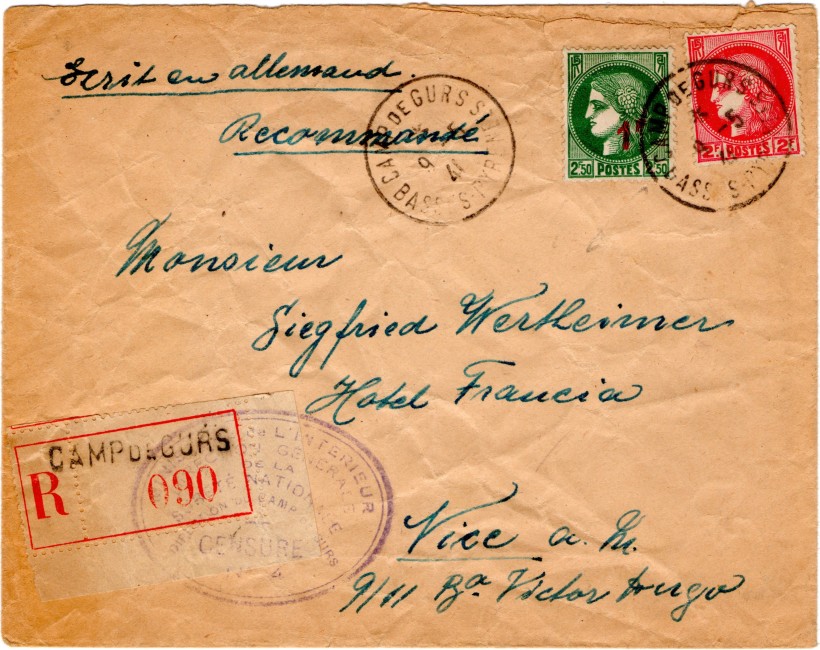 Ecrit en allemand.
Recommandé
CAMP DE GURS
BASS S-PYR
9
41
1F
2F50 POSTES 2F50
2F POSTES 2F
CAMP DE GURS
BASS S-PYR
Monsieur
Siegfried Wertheimer
Hotel Francia
Nice a. M.
9/11 Bd Victor Hugo
CAMP DE GURS
R 090
DE L'INTERIEUR
GENERALE
DE LA
NATIONALE
CAMP GURS
CENSURE
4